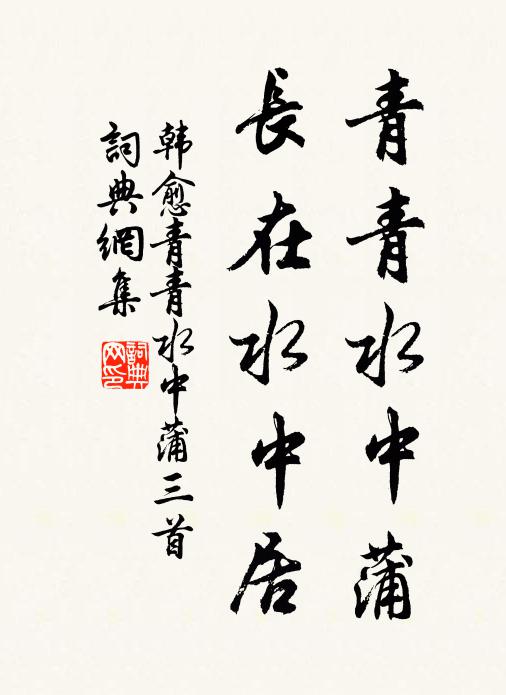 青青水中蒲
長在水中居
韩愈青青水中蒲三首
詞典網集
詞典
网印